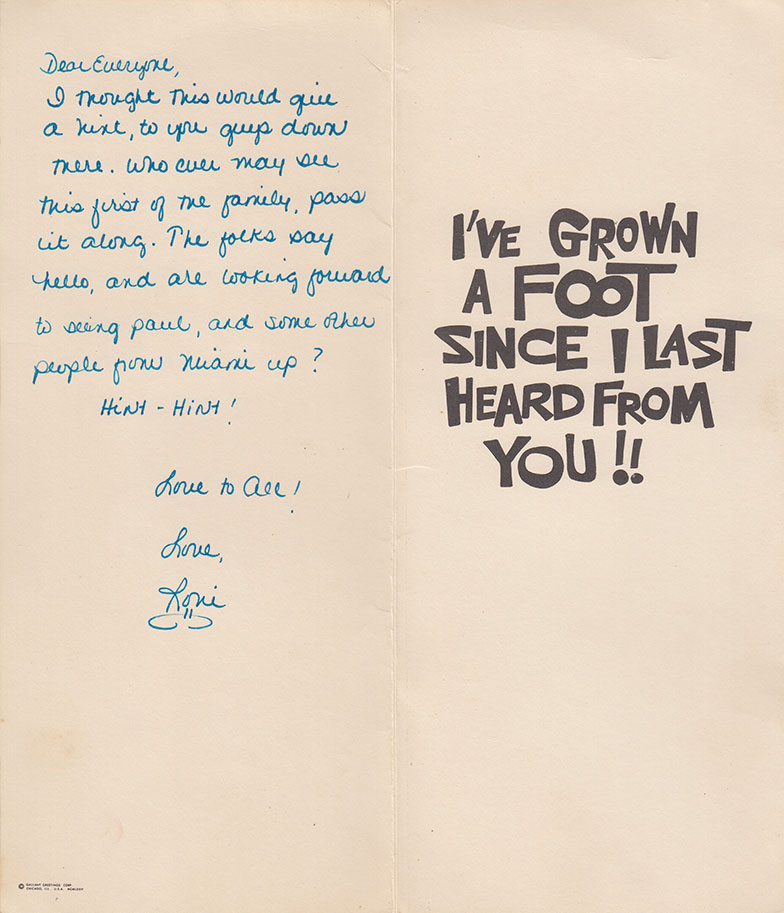 Dear Everyone,
I thought this would give
a hint, to you guys down
there. Who ever may see
this first of the family, pass
it along. The folks say
hello, and are looking forward
to seeing paul, and some other
people from Miami up?
Hint - Hint!
Love to All!
Love,
Roni
© GALLANT GREETINGS CORP.
CHICAGO, ILL. U.S.A.
I'VE GROWN
A FOOT
SINCE I LAST
HEARD FROM
YOU!!